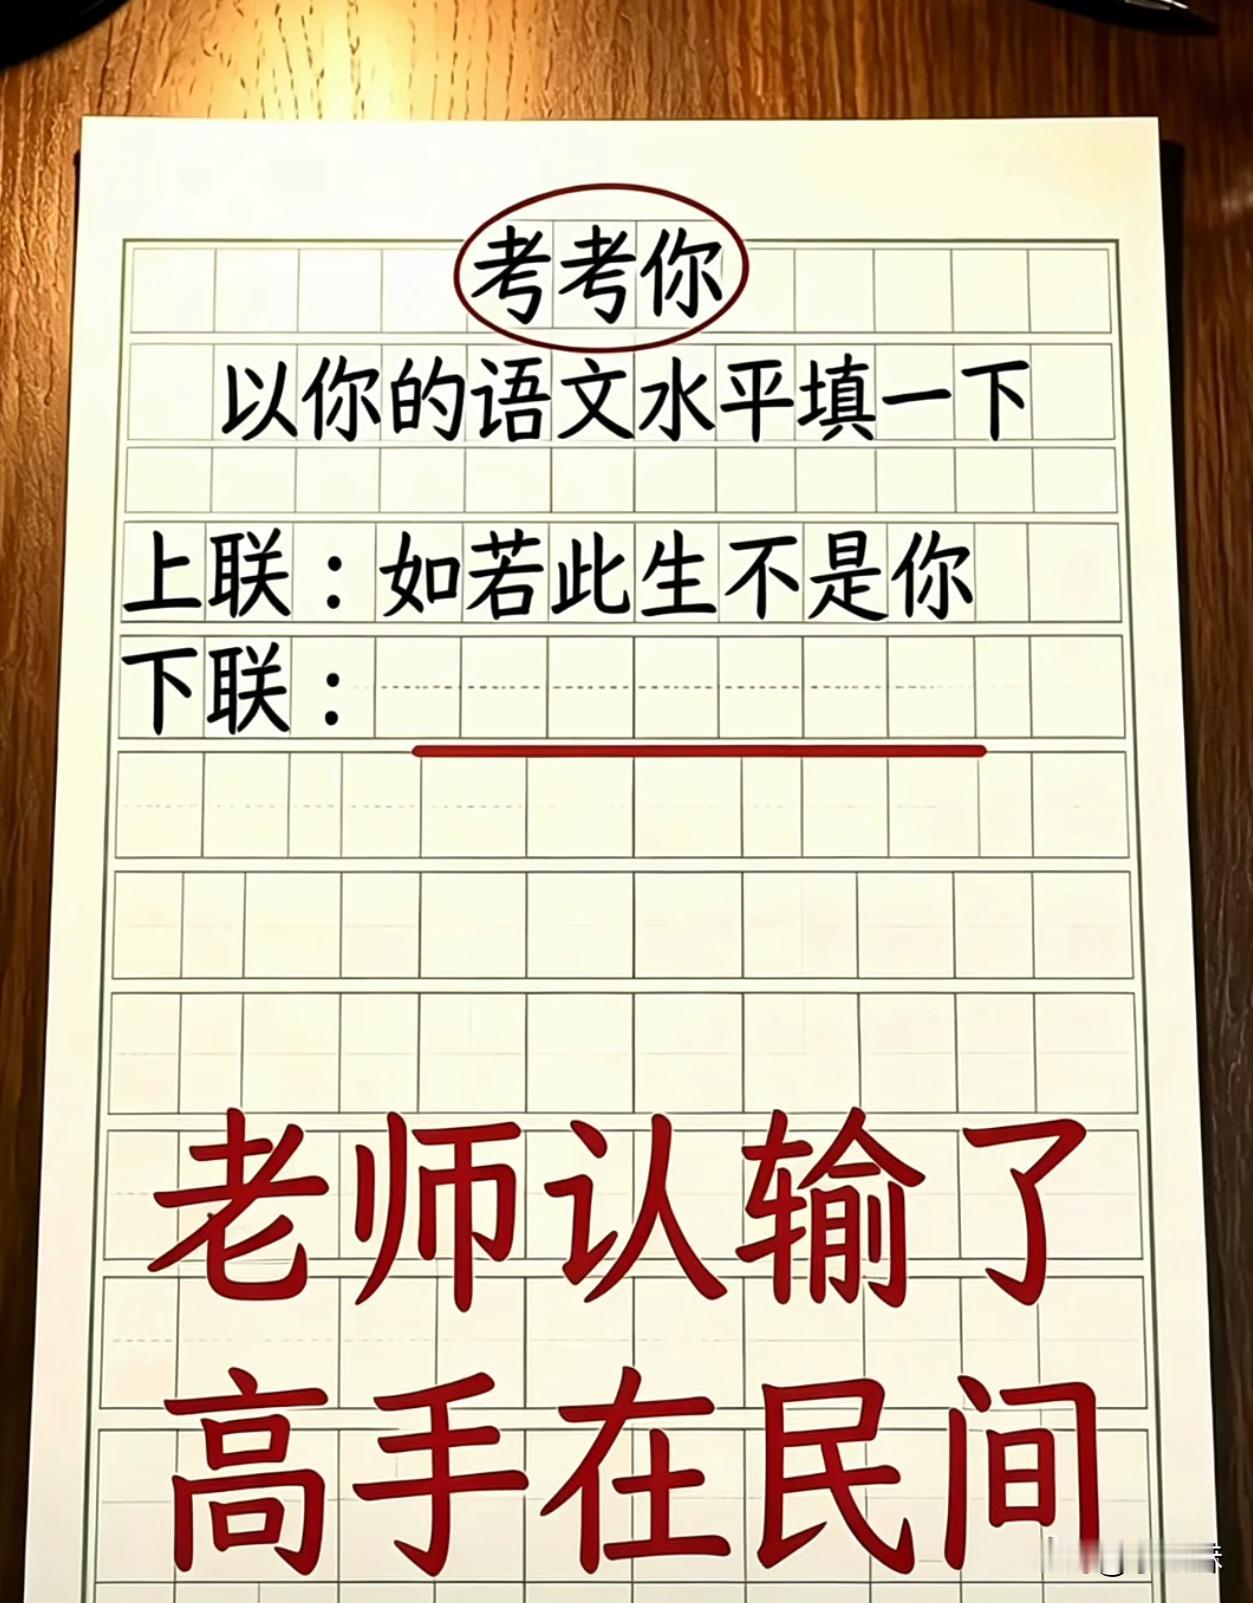 考考你
以你的语文水平填一下
上联：如若此生不是你
下联：
老师认输了
高手在民间